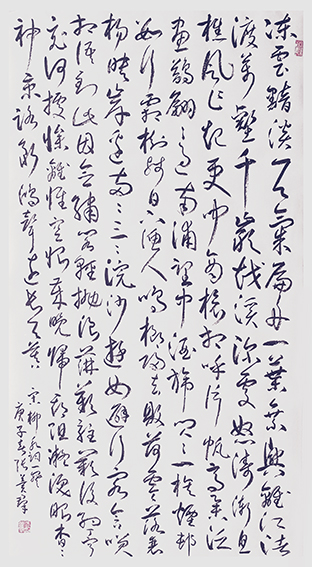 冻云黯淡天气扁舟一叶乘兴离江渚
渡万壑千岩越溪深处怒涛渐息
樵风乍起更闻商旅相呼片帆高举泛
画鹢翩翩过南浦望中酒旆闪闪一簇烟村
数行霜树残日下渔人鸣榔归去败荷零落衰
杨掩映岸边两两三三浣沙游女避行客含羞笑
相语到此因念绣阁轻抛浪萍难驻叹后约丁宁
竟何据惨离怀空恨岁晚归期阻凝泪眼杳杳
神京路断鸿声远长天暮
宋柳永词一首
庚子春张